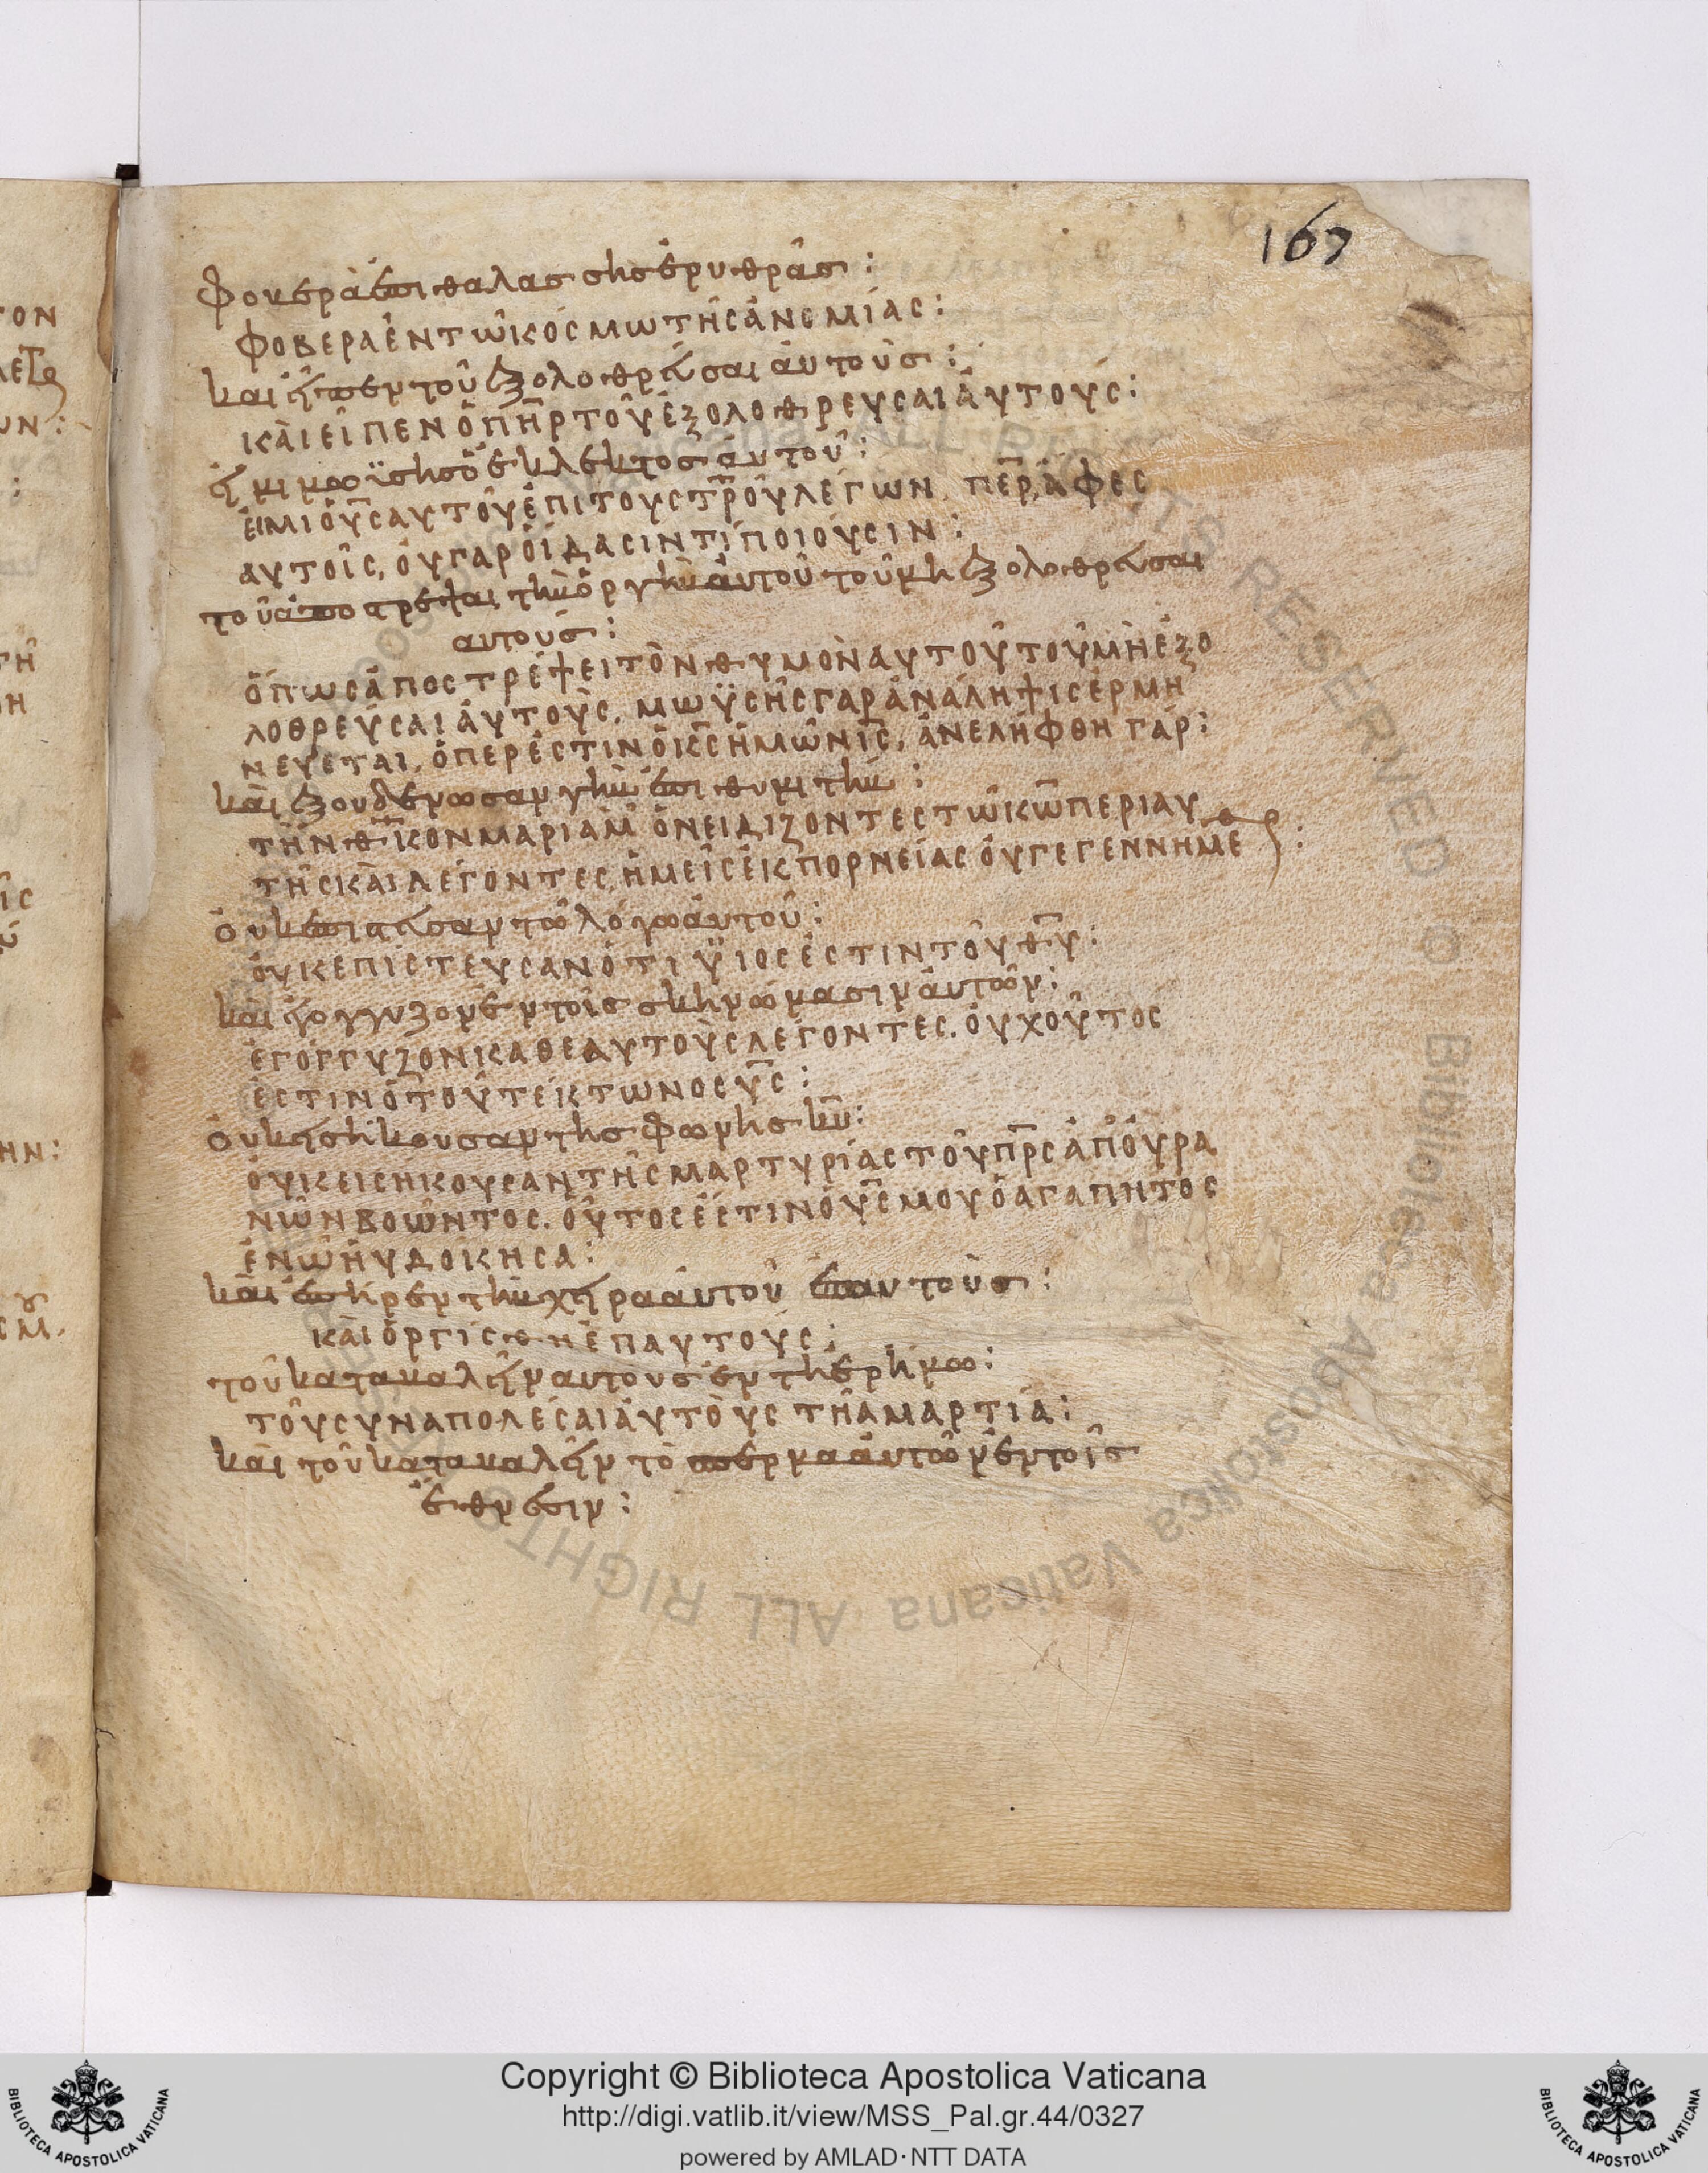 167
φοβερὰ ἐπι θαλασσησ ἐρυθρᾶσ :
ΦΟΒΕΡΑ ἘΝ ΤΩ ΚΌΣΜΩ ΤΗ͂Σ ἈΝΟΜΊΑΣ :
και εἶπεν τοῦ ἐξολοθρεύσαι ἀυτοὺσ :
ΚΑῚ ΕἾΠΕΝ Ὁ ΠΗ̅Ρ ΤΟΥ͂ ἘΞΟΛΟΘΡΕΥΣΑΙ ἈΥΤΟΎΣ :
εἰ μι μωϋσησ ὁ ἐκλεκτοσ ἀυτοῦ :
ΕἸ ΜΙ Ὁ Υ̅Σ ΑΥΤΟΥ͂ ἘΠΙ ΤΟΥ Σ̅Τ̅Ρ̅ΟΥ͂ ΛΕΓΩΝ, Π̅Ε̅Ρ, ἌΦΕΣ
ΑΥΤΟΙ͂Σ, ΟΥ ΓΑΡ ὈΊΔΑΣΙΝ ΤΊ ΠΟΙΟΥ͂ΣΙΝ :
τοῦ ἀποτρέψαι τὴν ὀργὴν ἀυτοῦ τοῦ μὴ ἐξολοθρεύσαι
αυτούσ :
ὍΠΩΣ ἈΠΟΣΤΡΈΨΕΙ ΤῸΝ ΘΥΜῸΝ ΑΥΤΟΥ͂ ΤΟΥ͂ ΜῊ ἘΞΟ
ΛΟΘΡΕΥ͂ΣΑΙ ἈΥΤΟῪΣ, ΜΩΫΣΗ͂Σ ΓΑΡ ἈΝΆΛΗΨΙΣ ἘΡΜΗ
ΝΕΥΕΤΑΙ, ὍΠΕΡ ἘΣΤΙΝ Ὁ Κ̅Σ ἩΜΩ͂Ν Ι̅Σ, ἈΝΕΛΉΦΘΗ ΓΆΡ :
καὶ ἐξουδένωσαν γῆν ἐπιθυμιτὴν :
ΤῊΝ Θ̅ΚΟΝ ΜΑΡΙΑΜ ὈΝΕΙΔΙΖΟΝΤΕΣ ΤΩ Κ̅Ω ΠΕΡΙ ΑΥ
ΤΗ͂Σ ΚΑῚ ΛΕΓΟΝΤΕΣ, ἩΜΕΙ͂Σ ἘΚ ΠΟΡΝΕΊΑΣ ὈΥ ΓΕΓΕΝΝΗΜΕΘΑ :
ὀυκ ἐπιστευσαν τῶ λόγω ἀυτοῦ :
ὈΥΚ ΕΠΊΣΤΕΥΣΑΝ ὍΤΙ ΫΙΟΣ ἘΣΤΙΝ ΤΟΥ͂ Θ̅Υ :
καὶ ἐγογγυζον ἐν τοῖσ σκηνώμασιν ἀυτῶν :
ἘΓΌΓΓΥΖΟΝ ΚΑΘ ΕΑΥΤΟῪΣ ΛΕΓΟΝΤΕΣ. ὈΥΧ ΟΥ͂ΤΟΣ
ἘΣΤΙΝ Ὁ ΤΟΥ͂ ΤΕΚΤΩΝΟΣ Υ̅Σ :
ὀυκ εισήκουσαν τησ φωνησ κ̅υ :
ὈΥΚ ΕΙΣΗΚΟΥΣΑΝ ΤΗ͂Σ ΜΑΡΤΥΡΊΑΣ ΤΟΥ͂ Π̅Ρ̅Σ ἈΠ ὈΥΡΑ
ΝΩ͂Ν ΒΟΩ͂ΝΤΟΣ. ΟΥ͂ΤΟΣ ἘΣΤΙΝ Ὁ Υ̅Σ ΜΟΥ Ὁ ΑΓΑΠΗΤΟΣ
ἘΝ Ω ἨΥΔΟΚΗΣΑ :
καὶ ἐπῆρεν τὴν χεῖρα ἀυτοῦ ἐπ αυτοὺσ :
ΚΑῚ ὈΡΓΊΣΘΗ ἘΠ ΑΥΤΟΥΣ :
τοῦ καταβαλεῖν αυτουσ ἐν τῆ ἐρήμω :
ΤΟΥ͂ ΣΥΝΑΠΟΛΈΣΑΙ ἈΥΤΟῪΣ ΤΗ͂ ἉΜΑΡΤΊΑ :
καὶ τοῦ καταβαλεῖν τὸ σπέρμα ἀυτῶν ἐν τοῖσ
ἔθνεσιν :
Copyright © Biblioteca Apostolica Vaticana
http://digi.vatlib.it/view/MSS_Pal.gr.44/0327
powered by AMLAD·NTT DATA
BIBLIOTECA APOSTOLICA VATICANA
BIBLIOTECA APOSTOLICA VATICANA